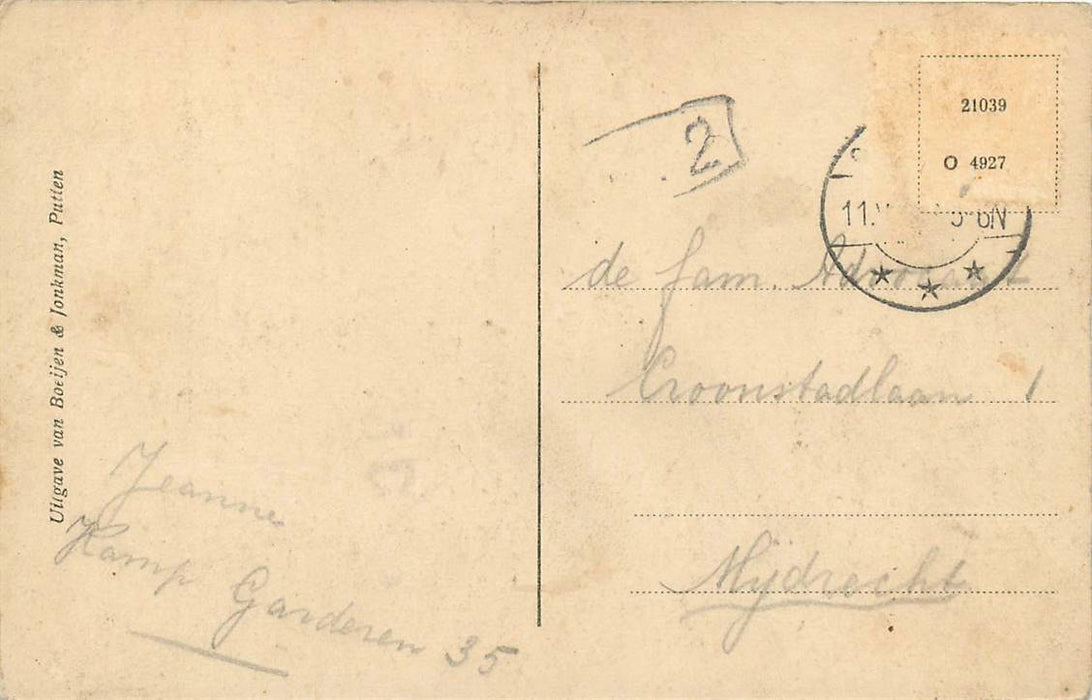 Uitgave van Boeijen & Jonkman, Putten
Jeanne
Kamp Garderen 35
2
21039
O 4927
11.V 5-6N
de fam. Advocaat
Croonstadlaan 1
Mijdrecht